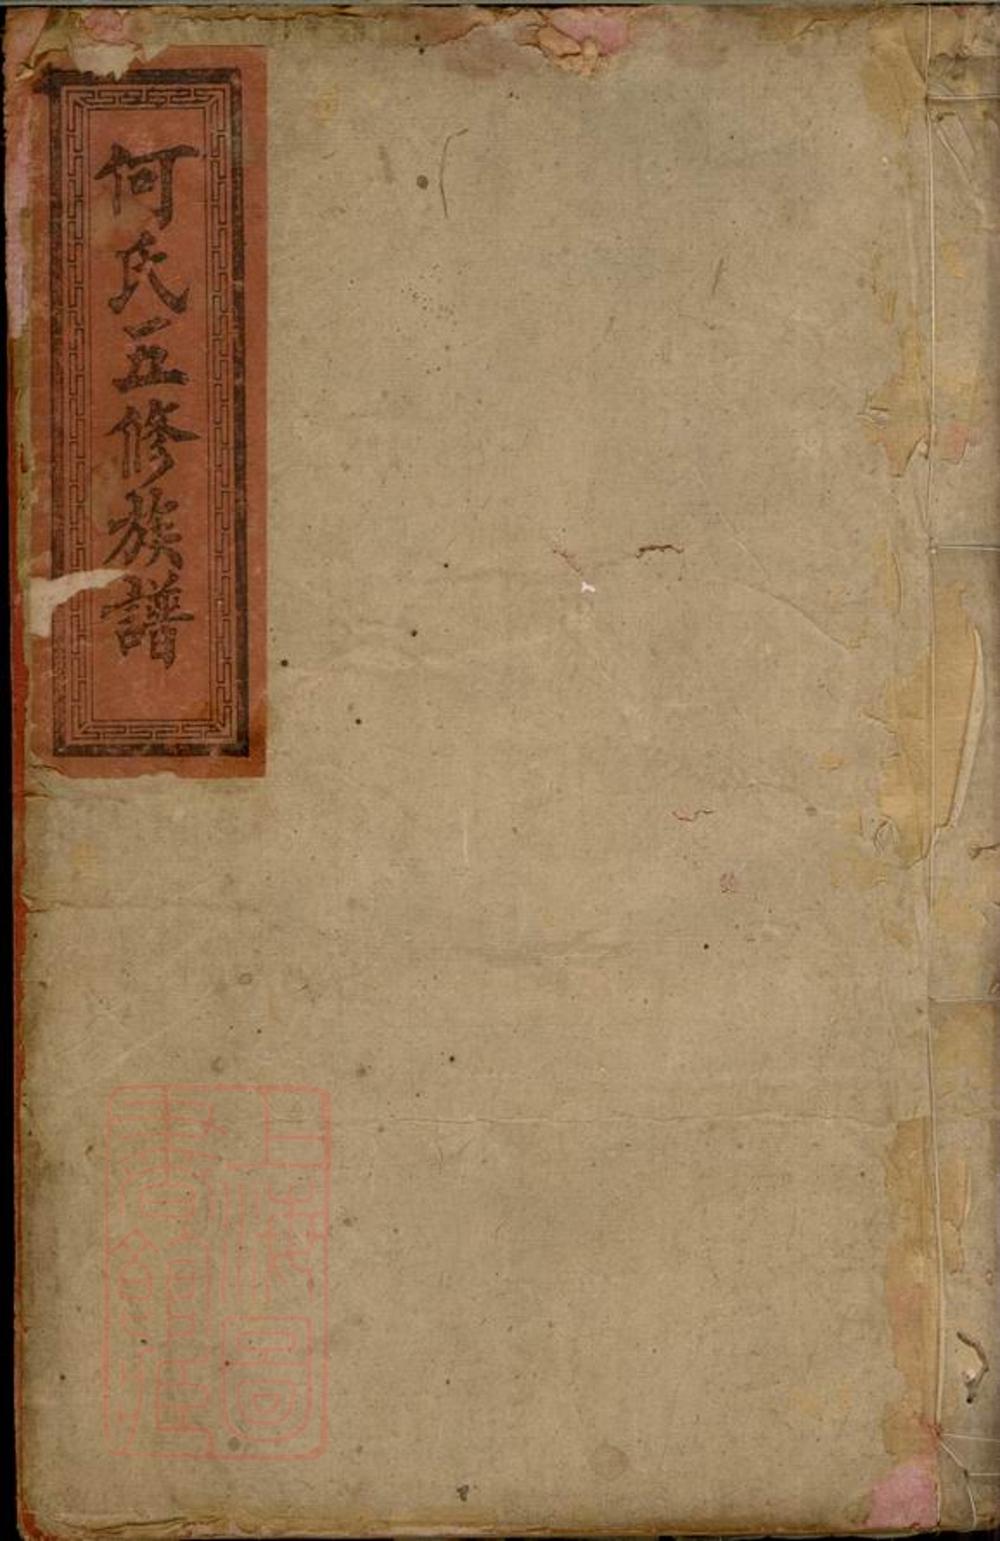 何氏五修族譜
上海圖
書館藏